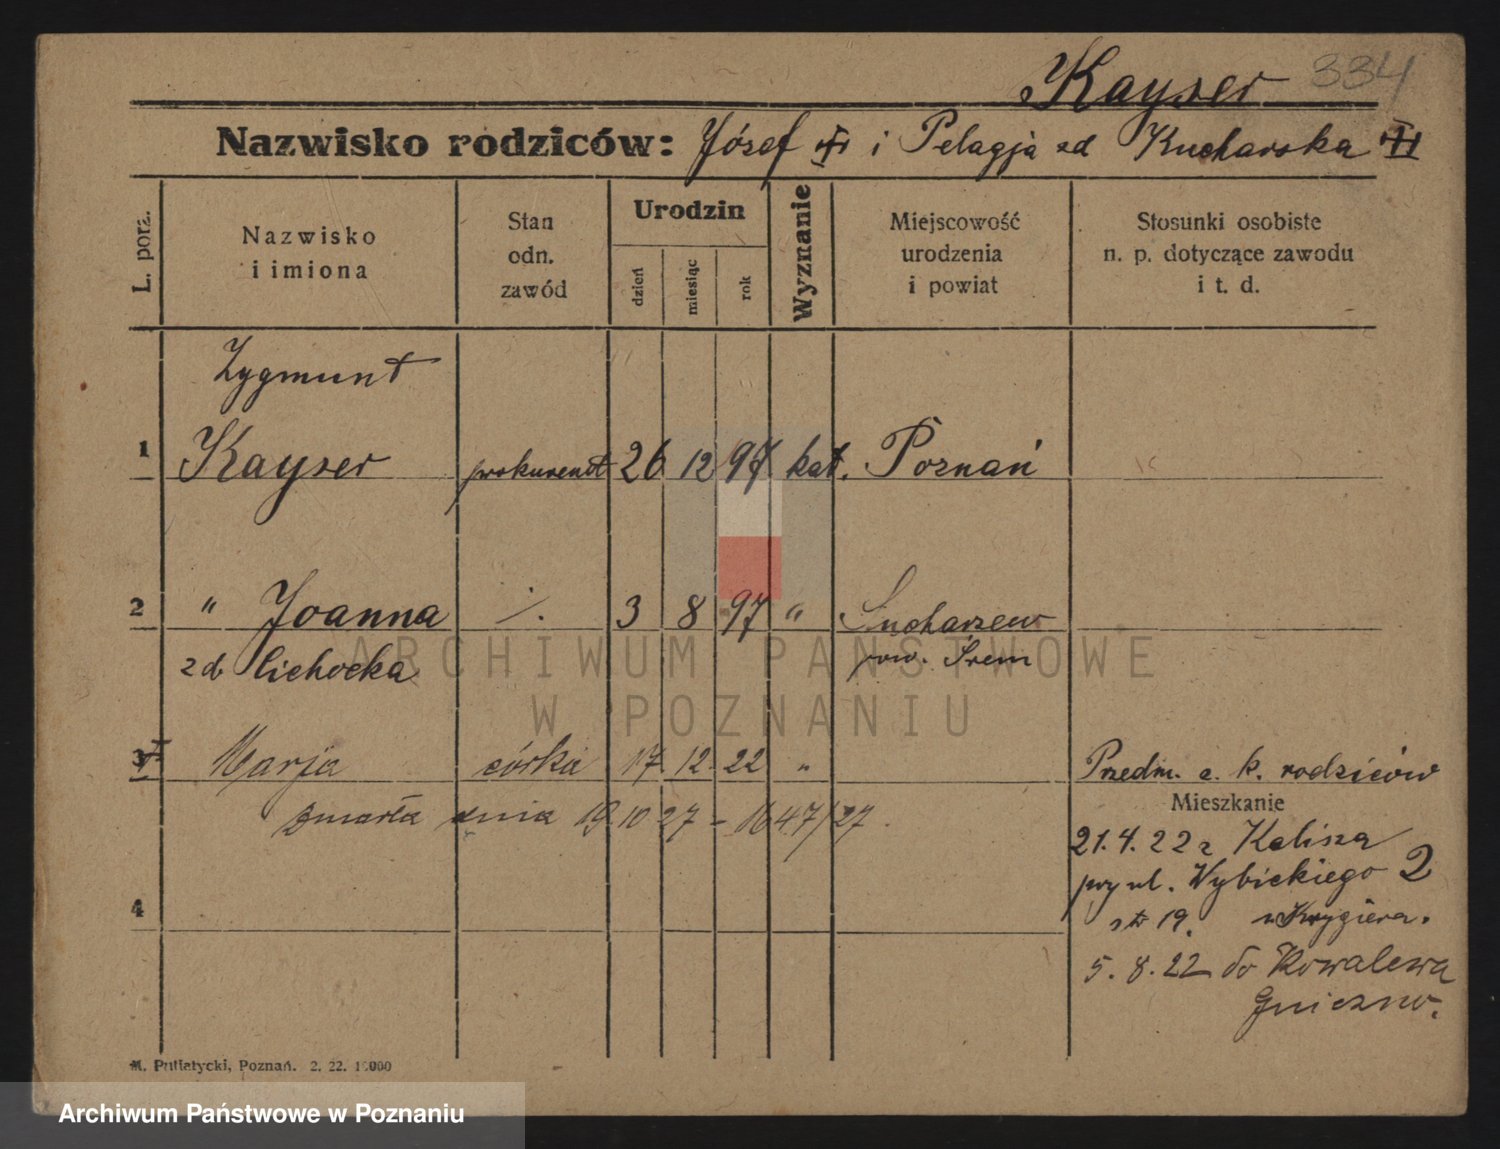 Kayser 334
Nazwisko rodziców: Józef i Pelagja zd Kucharska
L. porz.
Nazwisko
i imiona
Stan
odn.
zawód
Urodzin
dzień
miesiąc
rok
Wyznanie
Miejscowość
urodzenia
i powiat
Stosunki osobiste
n. p. dotyczące zawodu
i t. d.
Zygmunt
1 Kayser prokurent 26 12 97 kat. Poznań
2 " Joanna ./. 3 8 97 " Sucharzew
zd Cichocka pow. Śrem
3 Marja córka 17 12 22 " Przedm. z. k. rodziców
Mieszkanie
zmarła dnia 19 10 27 - 1647/27
21.4.22 z Kalisza
przy ul. Wybickiego 2
19. Krygiera.
4
5.8.22 do Kowalewa
Gniezno.
M. Putiatycki, Poznań. 2. 22. 000
ARCHIWUM PAŃSTWOWE
W POZNANIU
Archiwum Państwowe w Poznaniu